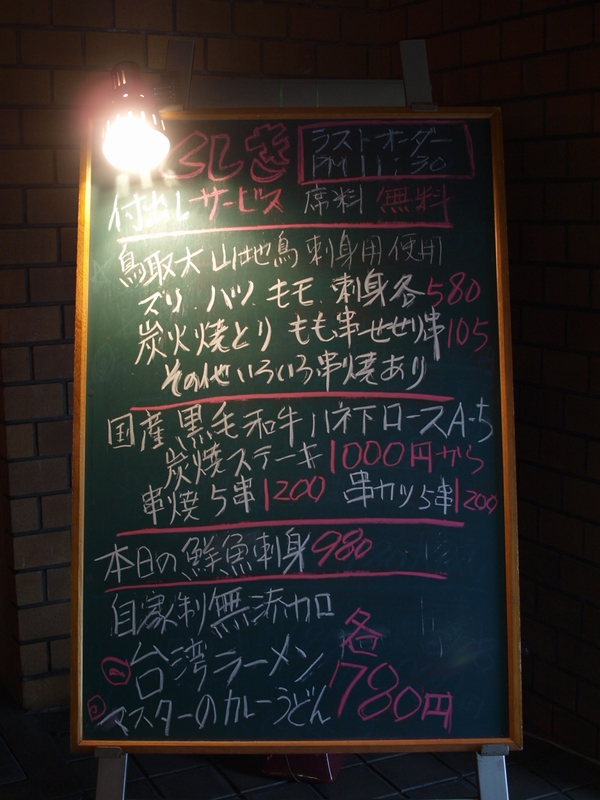 くしき
ラストオーダー
PM 11:30
付出しサービス 席料 無料
鳥取大山地鳥 刺身用使用
ズリ ハツ モモ 刺身各580
炭火焼とり もも串 せせり串105
その他いろいろ串焼あり
国産黒毛和牛ハネ下ロースA-5
炭焼ステーキ1000円から
串焼5串1200 串カツ5串1200
本日の鮮魚刺身980
自家制無添加
台湾ラーメン
マスターのカレーうどん
各
780円